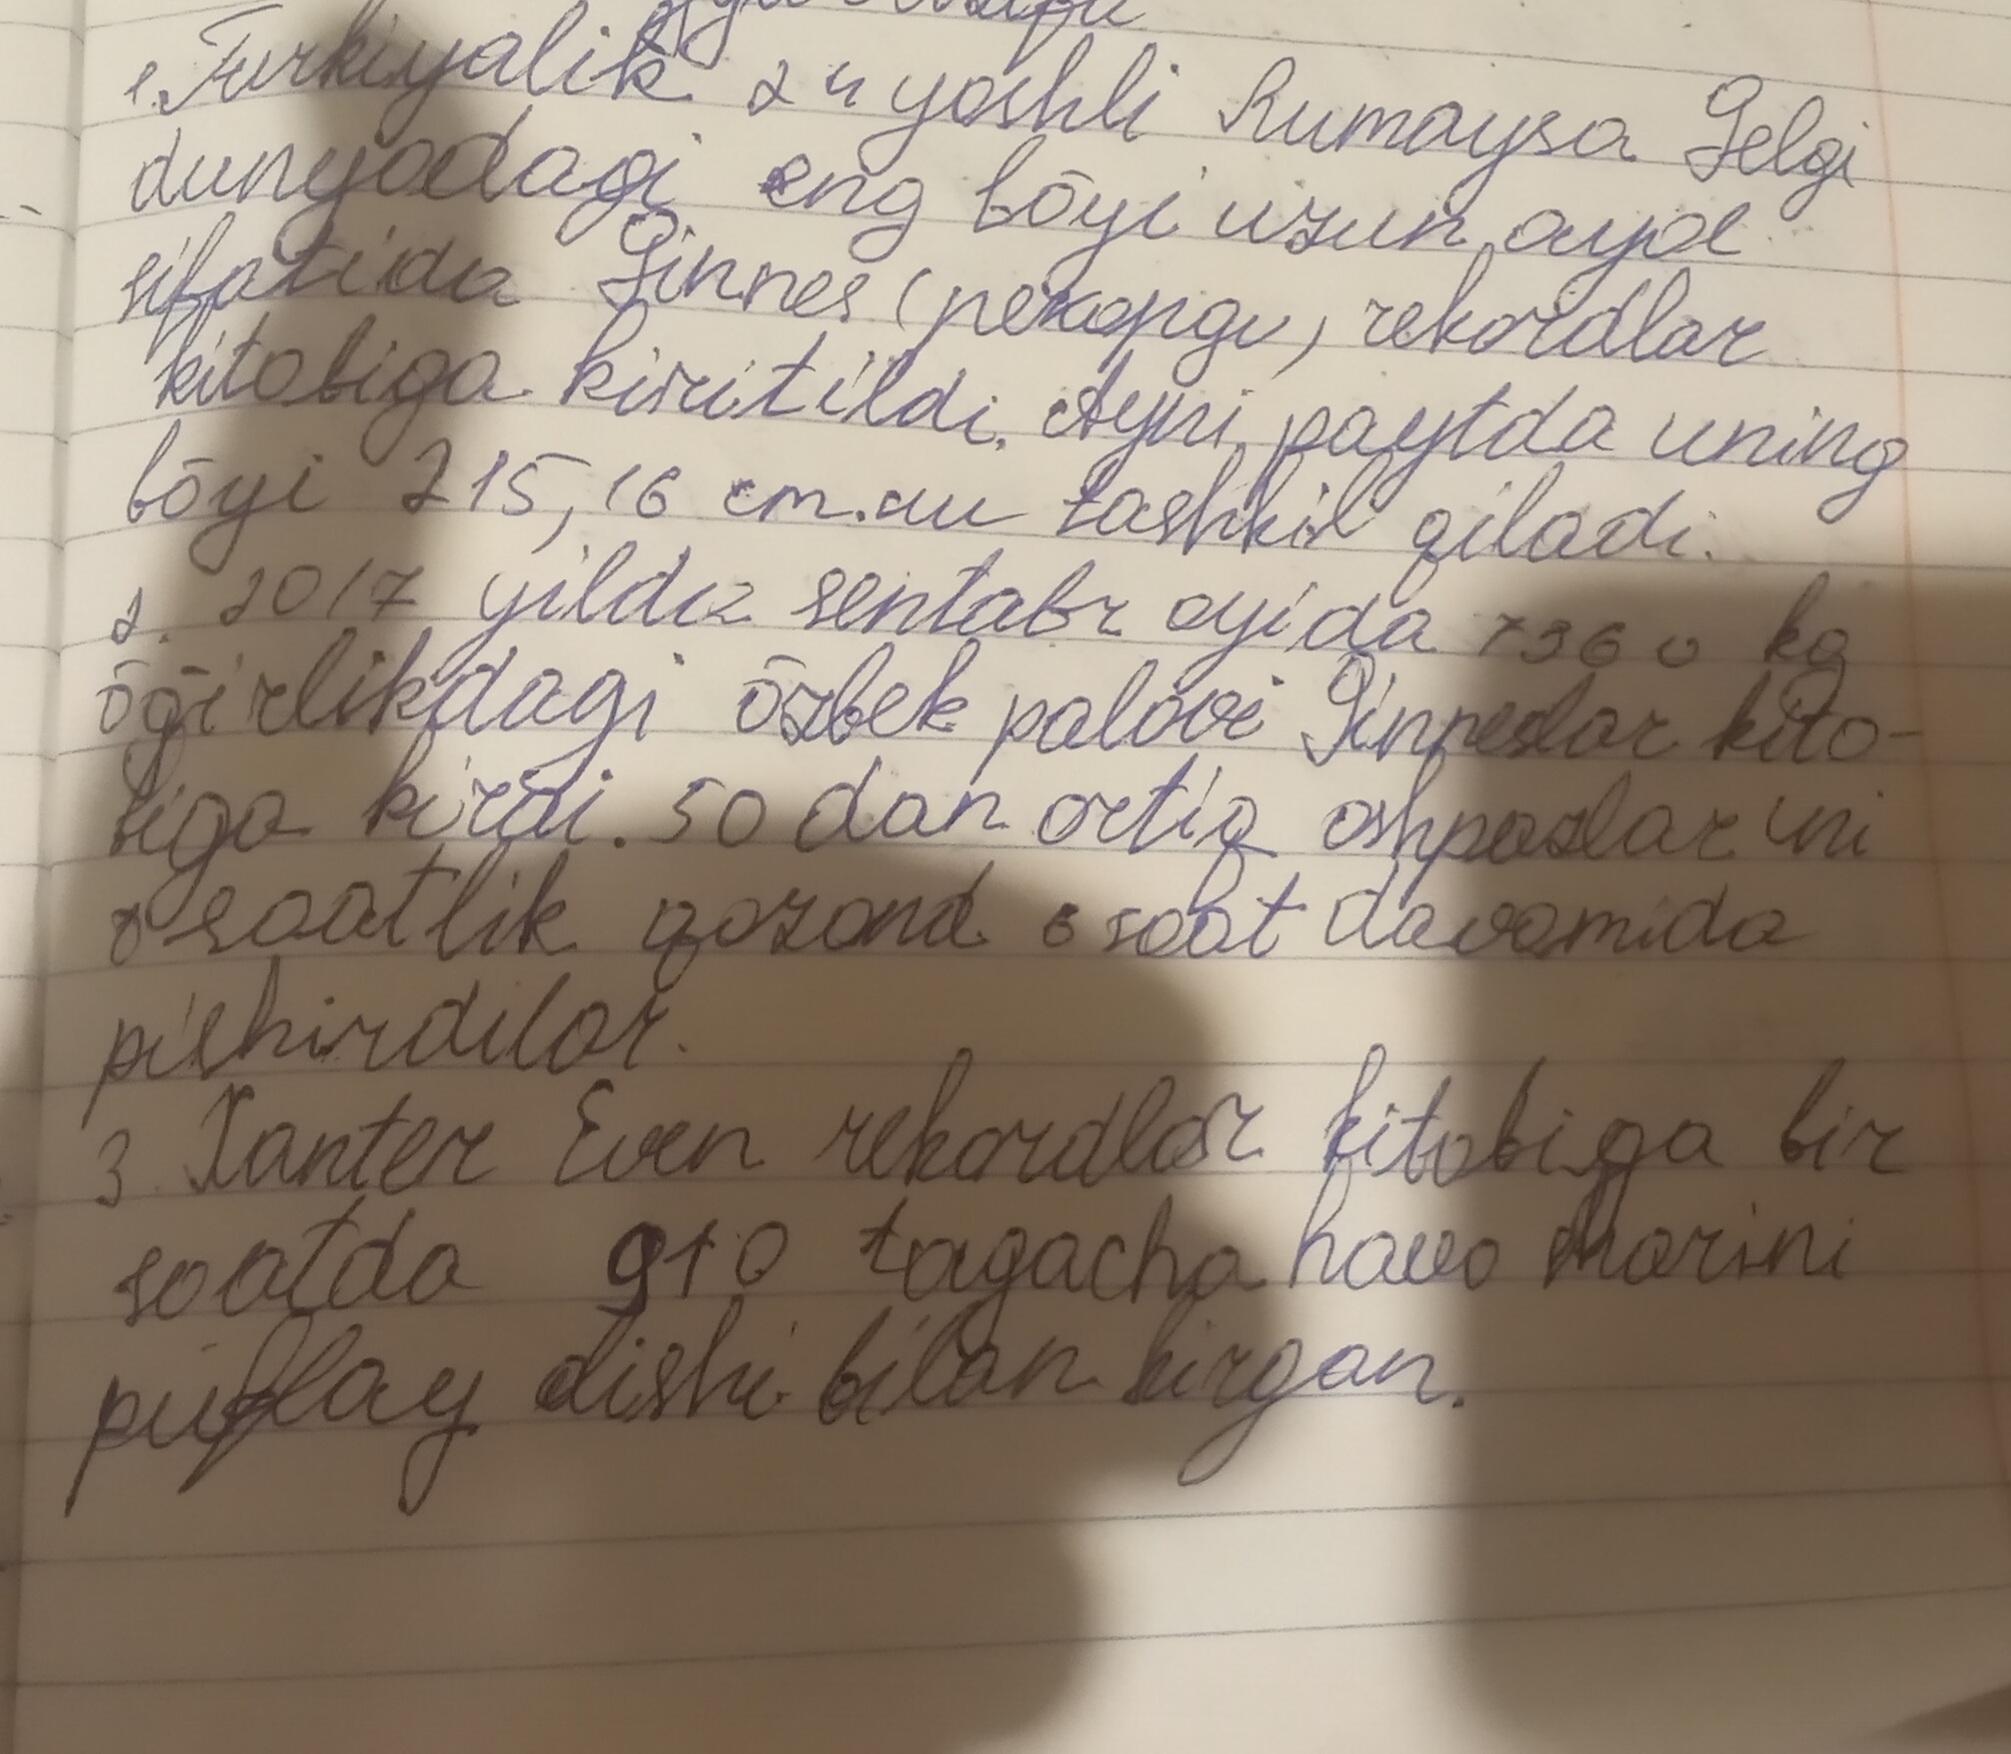 1. Turkiyalik 24 yoshli Rumaysa Gelgi
dunyodagi eng bōyi uzun ayol
sifatida Ginnes (рекорди) rekordlar
kitobiga kiritildi. Ayni paytda uning
bōyi 215,16 cm.ni tashkil qiladi.
2. 2017 yilda sentabr oyida 7360 kg
ōgirlikdagi ōzbek palovi Ginneslar kito-
biga kirdi. 50 dan ortiq oshpazlar uni
8 soatlik qozond 6 soat davomida
pishirdilar.
3. Xanter Even rekordlar kitobiga bir
soatda 910 tagacha havo sharini
puflay olishi bilan kirgan.